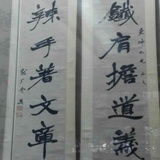 鐵肩擔道義
辣手著文章